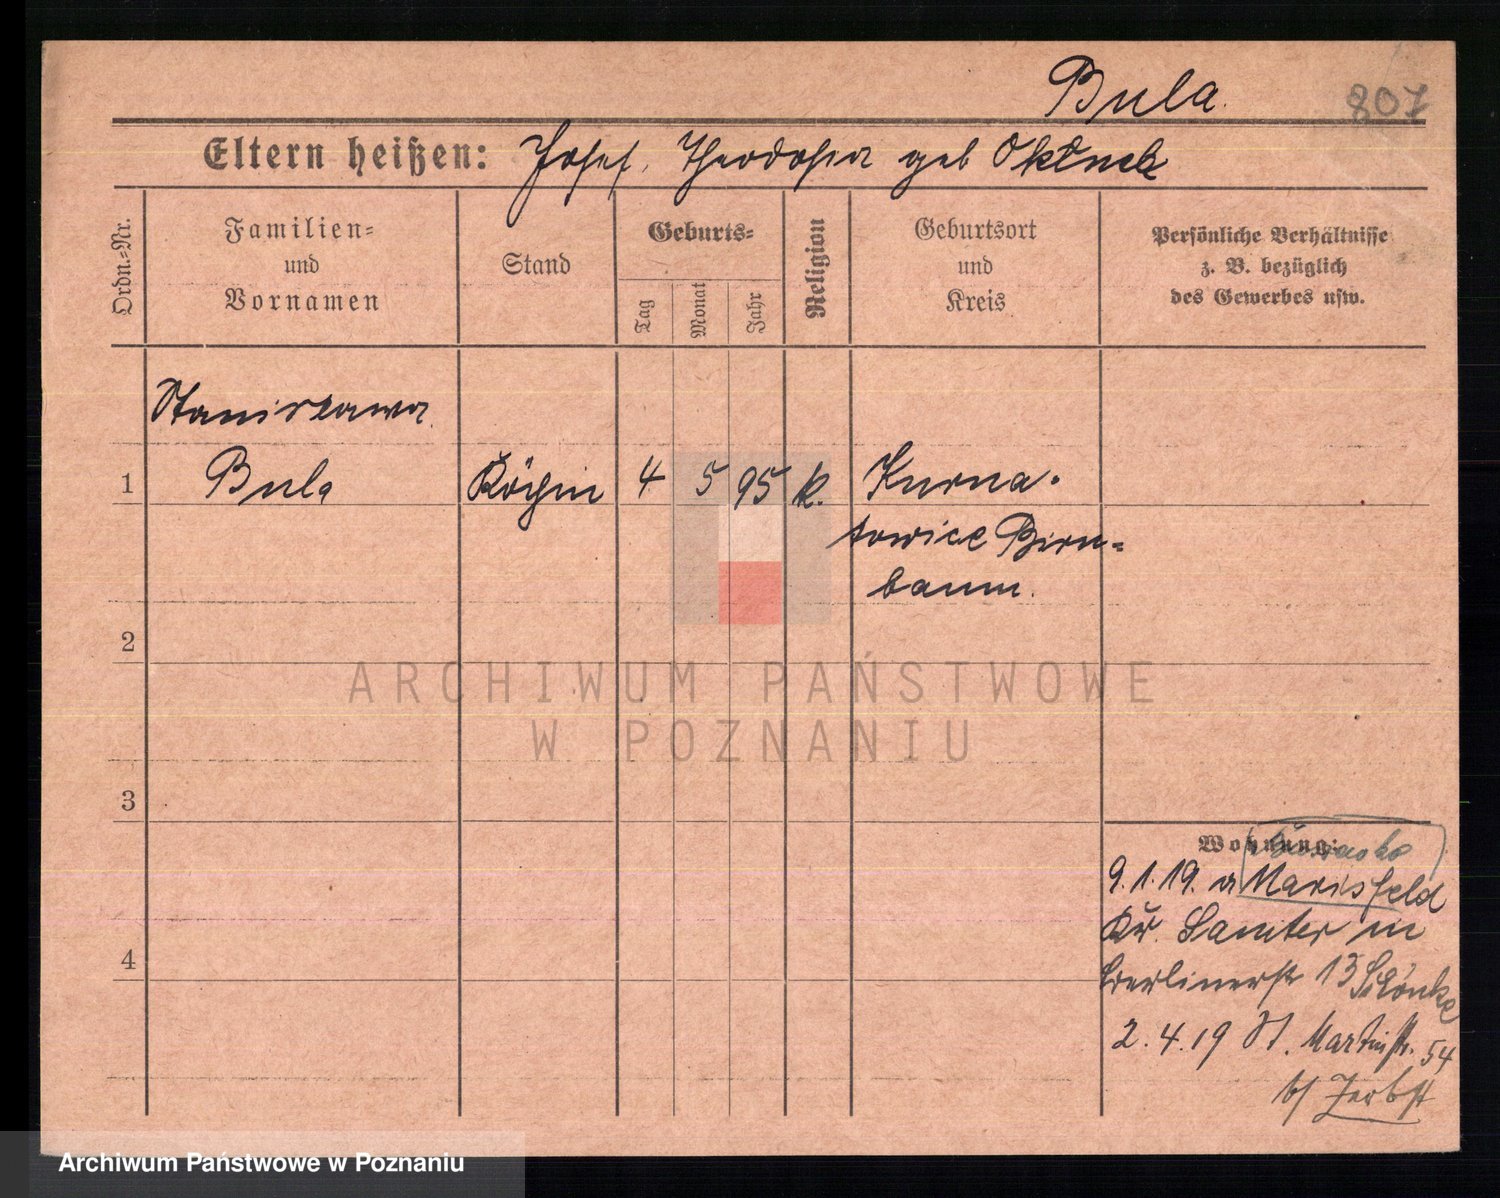 Bula.
807
Eltern heißen: Josef, Theodosia geb
Ordn.-Nr.
Familien- und Vornamen
Stand
Geburts-
Tag
Monat
Jahr
Religion
Geburtsort und Kreis
Persönliche Verhältnisse z. B. bezüglich des Gewerbes usw.
Stanisława
1 Bula Köchin 4 5 95 k. Kurna-
towice Birn-
baum.
2
3
4
Wohnung:
9.1.19. a Marisfeld
Kr. Samter in
Berlinerstr 13 Schönke
2.4.19 St. Martinstr. 54
b/ Zerbst
ARCHIWUM PAŃSTWOWE
W POZNANIU
Archiwum Państwowe w Poznaniu